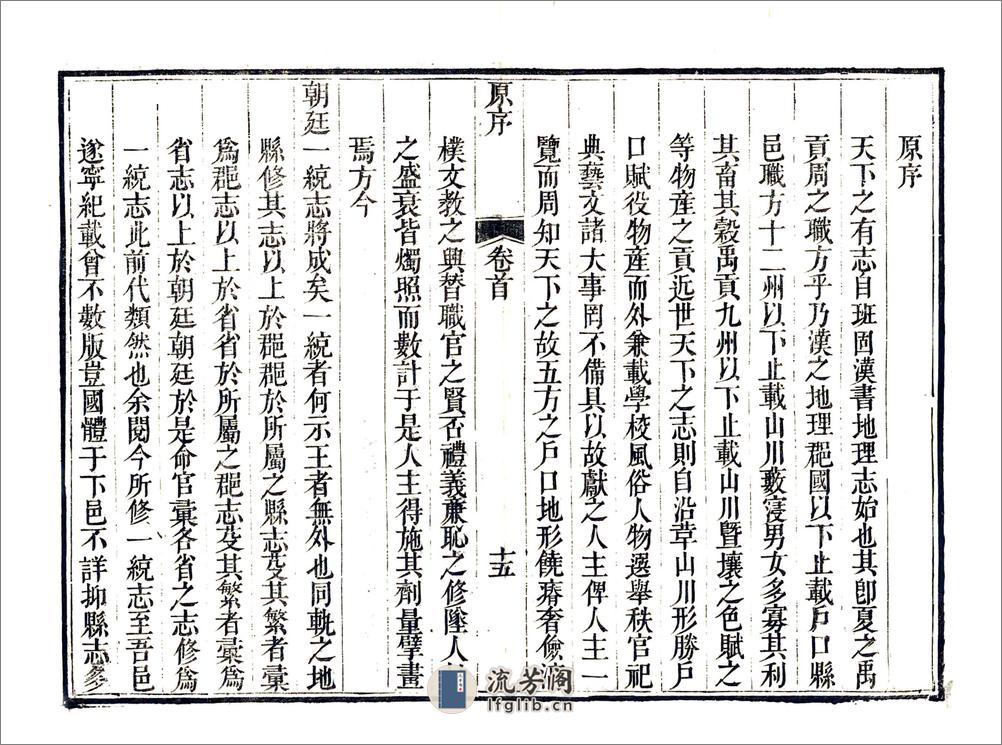 原序
天下之有志自班固漢書地理志始也其卽夏之禹
貢周之職方乎乃漢之地理郡國以下止載戶口縣
邑職方十二州以下止載山川藪寖男女多寡其利
其畜其穀禹貢九州以下止載山川暨壤之色賦之
等物產之貢近世天下之志則自沿革山川形勝戶
口賦役物產而外兼載學校風俗人物選舉秩官祀
典藝文諸大事罔不備具以故獻之人主俾人主一
覽而周知天下之故五方之戶口地形饒瘠奢儉
原序
卷首
十五
樸文教之興替職官之賢否禮義廉恥之修墜人
之盛衰皆燭照而數計于是人主得施其劑量擘畫
焉方今
朝廷一統志將成矣一統者何示王者無外也同軌之地
縣修其志以上於郡郡於所屬之縣志芟其繁者彙
爲郡志以上於省省於所屬之郡志芟其繁者彙爲
省志以上於朝廷朝廷於是命官彙各省之志修爲
一統志此前代類然也余閱今所修一統志至吾邑
遂寧紀載曾不數版豈國體于下邑不詳抑縣志多
流芳阁
lfglib.cn